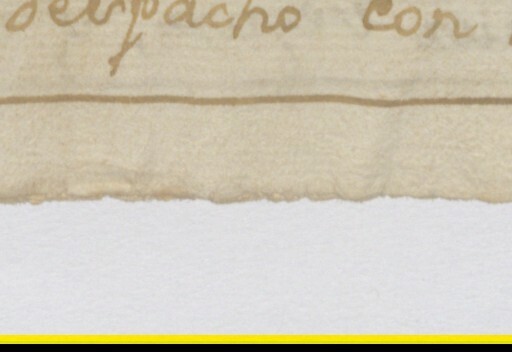 despacho con